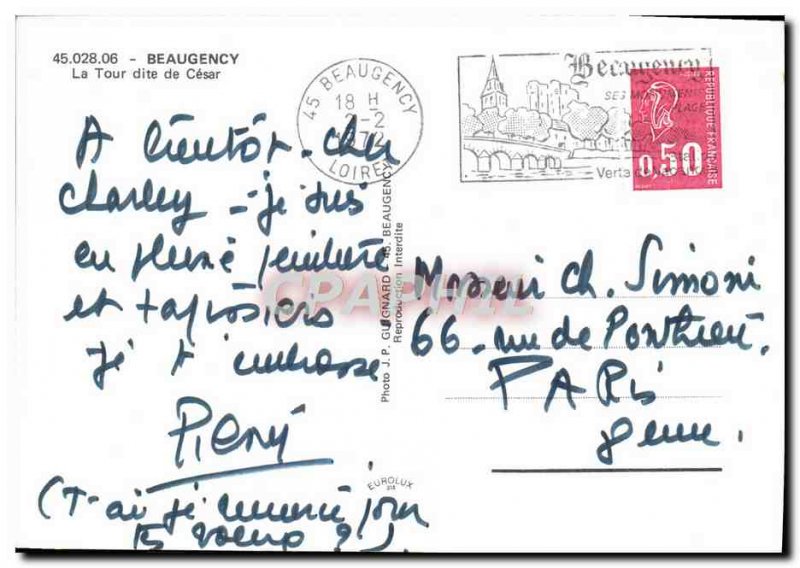 45.028.06 - BEAUGENCY
La Tour dite de César
45 BEAUGENCY
18 H
2-2
LOIRET
Beaugency
SES MONUMENTS
PLAGE
Verte
REPUBLIQUE FRANÇAISE
0,50
A bientôt - cher
Charley - je suis
en pleine peinture
et tapissiers
je t'embrasse
Rémy
(T-ai je remercié pour
tes voeux ?).
Photo J. P. GUIGNARD - 45. BEAUGENCY
Reproduction Interdite
EUROLUX
Monsieur Ch. Simoni
66 - rue de Ponthieu.
PARIS
8eme.
CPAPHIL